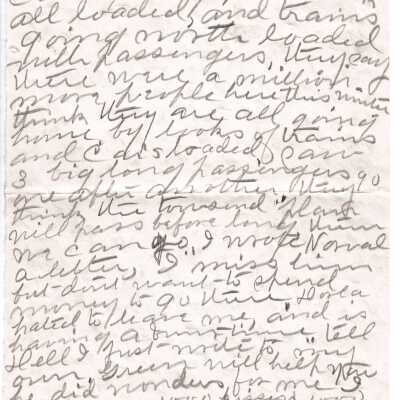 all loaded, and trains
going north loaded
with passengers, they say
there were a million
more people here this winter
think they are all going
home by looks of trains
and C ars loaded I saw
3 big long passengers go
one after another they
think the townsend plan
will pass before long then
we can go, I wrote Norval
a letter, I miss him
but dont want to spend
money to go there
hated to leave me and is
having a time tell
Hell I just write to my
will help
he did wonders for me I